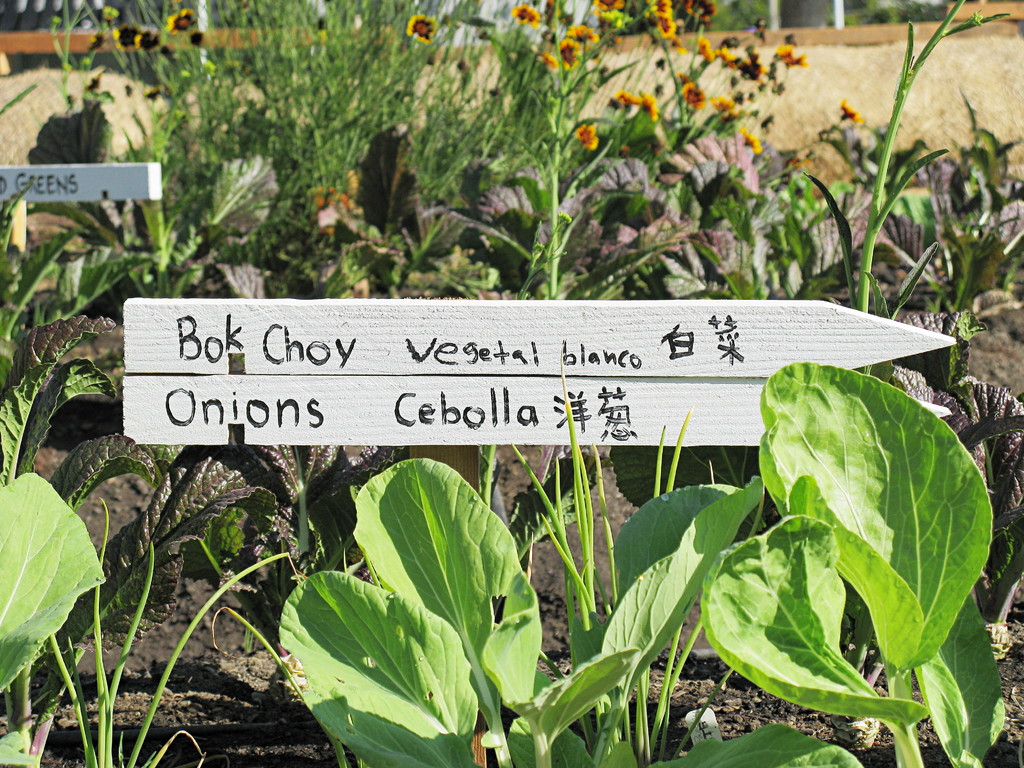 D GREENS
Bok Choy Vegetal blanco 白菜
Onions Cebolla 洋葱